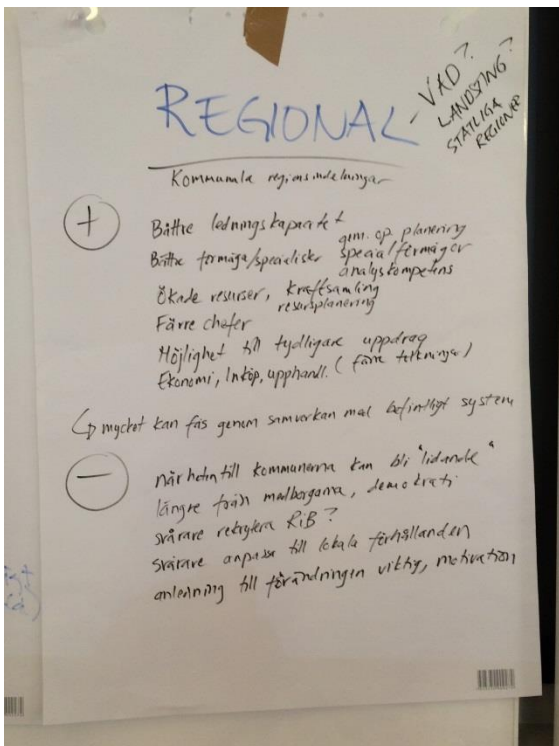 REGIONAL
- VAD?
LANDSTING?
STATLIGA
REGIONER
Kommunala regionsindelningar
+
Bättre ledningskapacitet
gm. op. planering
Bättre förmåga/specialister specialförmågor
analyskompetens
Ökade resurser, kraftsamling
resursplanering
Färre chefer
Möjlighet till tydligare uppdrag
Ekonomi, Inköp, upphandl. (färre tolkningar)
↳ mycket kan fås genom samverkan med befintligt system
−
närheten till kommunerna kan bli "lidande"
längre från medborgarna, demokrati
svårare rekrytera RiB?
svårare anpassa till lokala förhållanden
anledning till förändringen viktig, motivation